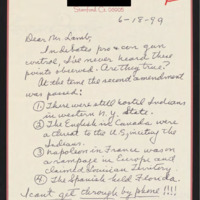 Stanford, CA 94305
6-18-99
Dear Mr. Lamb,
In debates pro & con gun
control, I've never heard these
points observed. Are they true?
At the time the second amendment
was passed:
① There were still hostile Indians
in western N.Y. State.
② The English in Canada were
a threat to the U.S. inciting the
Indians.
③ Napoleon in France was on
a rampage in Europe and
claimed Louisian Territory.
④ The Spanish held Florida.
I cant get through by phone !!!!